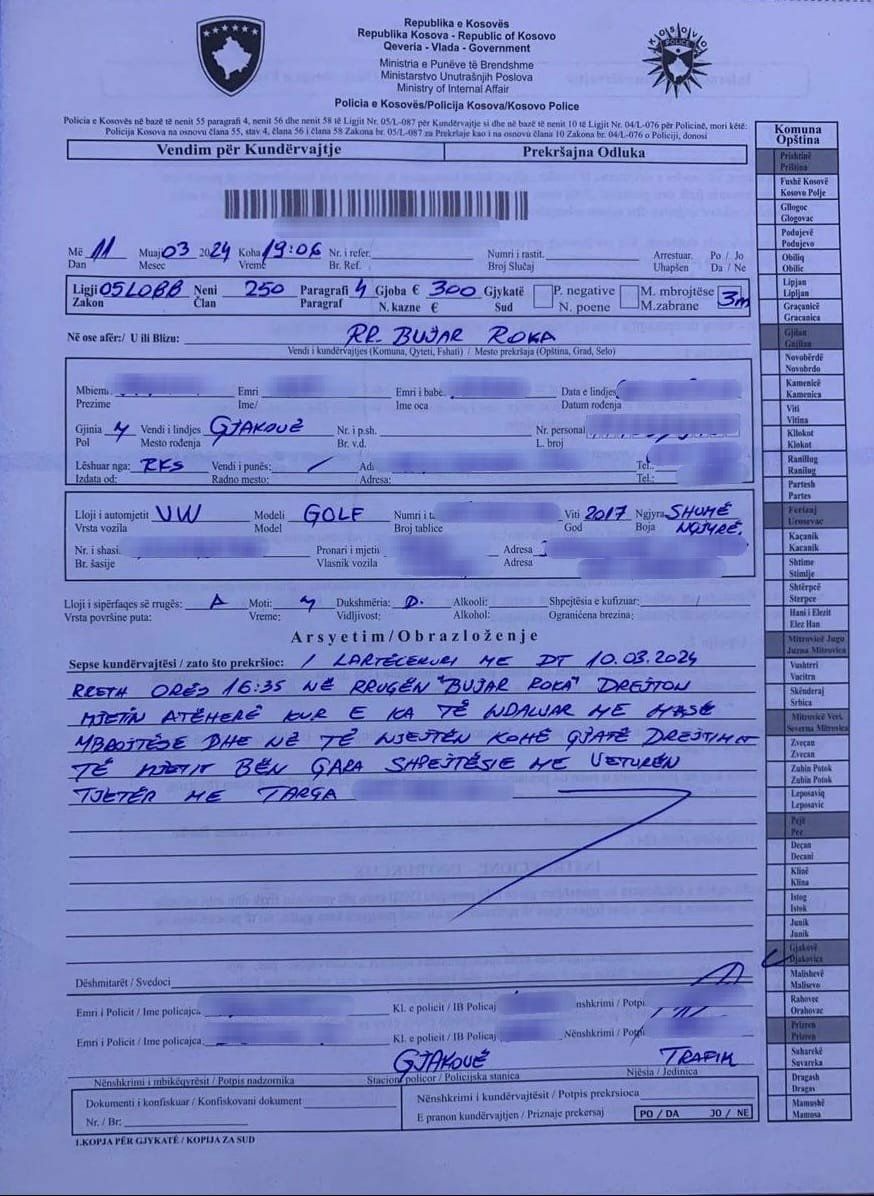 Republika e Kosovës
Republika Kosova - Republic of Kosovo
Qeveria - Vlada - Government
Ministria e Punëve të Brendshme
Ministarstvo Unutrašnjih Poslova
Ministry of Internal Affair
Policia e Kosovës/Policija Kosova/Kosovo Police
Policia e Kosovës në bazë të nenit 55 paragrafi 4, nenit 56 dhe nenit 58 të Ligjit Nr. 05/L-087 për Kundërvajtje si dhe në bazë të nenit 10 të Ligjit Nr. 04/L-076 për Policinë, mori këtë:
Policija Kosova na osnovu člana 55, stav 4, člana 56 i člana 58 Zakona br. 05/L-087 za Prekršaje kao i na osnovu člana 10 Zakona br. 04/L-076 o Policiji, donosi
Vendim për Kundërvajtje Prekršajna Odluka
Më 11 Muaji 03 2024 Koha 19:06 Nr. i refer. Numri i rastit. Arrestuar. Po / Jo
Dan Mesec Vreme Br. Ref. Broj Slučaj Uhapšen Da / Ne
Ligji 05L088 Neni 250 Paragrafi 4 Gjoba € 300 Gjykatë P. negative M. mbrojtëse 3m
Zakon Član Paragraf N. kazne € Sud N. poene M.zabrane
Në ose afër:/ U ili Blizu: RR. BUJAR ROKA
Vendi i kundërvajtjes (Komuna, Qyteti, Fshati) / Mesto prekršaja (Opština, Grad, Selo)
Mbiemi Emri Emri i babe Data e lindjes
Prezime Ime/ Ime oca Datum rođenja
Gjinia M Vendi i lindjes GJAKOVË Nr. i p.sh. Nr. personal
Pol Mesto rođenja Br. v.d. L. broj
Lëshuar nga: RKS Vendi i punës: / Adr Tel.:
Izdata od: Radno mesto: Adresa: Tel.:
Lloji i automjetit VW Modeli GOLF Numri i t Viti 2017 Ngjyra SHUMË
Vrsta vozila Model Broj tablice God Boja NGJYRË.
Nr. i shasi Pronari i mjetit Adresa
Br. šasije Vlasnik vozila Adresa
Lloji i sipërfaqes së rrugës: A Moti: M Dukshmëria: D. Alkooli: Shpejtësia e kufizuar: /
Vrsta površine puta: Vreme: Vidljivost: Alkohol: Ograničena brezina:
Arsyetim/Obrazloženje
Sepse kundërvajtësi / zato što prekršioc: I LARTËCEKURI ME DT 10.03.2024
RRETH ORËS 16:35 NË RRUGËN "BUJAR ROKA" DREJTON
MJETIN ATËHERË KUR E KA TË NDALUAR ME MASË
MBROJTËSE DHE NË TË NJEJTËN KOHË GJATË DREJTIMIT
TË MJETIT BËN GARA SHPEJTËSIE ME VETURËN
TJETËR ME TARGA
Dëshmitarët / Svedoci
Emri i Policit / Ime policajca Kl. e policit / IB Policaj nshkrimi / Potpi
Emri i Policit / Ime policajca Kl. e policit / IB Policaj Nënshkrimi / Potpi
GJAKOVË TRAFIK
Nënshkrimi i mbikëqyrësit / Potpis nadzornika Stacioni policor / Policijska stanica Njësia / Jedinica
Dokumenti i konfiskuar / Konfiskovani dokument
Nr. / Br:
Nënshkrimi i kundërvajtësit / Potpis prekrsioca
E pranon kundërvajtjen / Priznaje prekersaj PO / DA JO / NE
1.KOPJA PËR GJYKATË / KOPIJA ZA SUD
Komuna
Opština
Prishtinë
Priština
Fushë Kosovë
Kosovo Polje
Gllogoc
Glogovac
Podujevë
Podujevo
Obiliq
Obilic
Lipjan
Lipljan
Graçanicë
Gracanica
Gjilan
Gnjilan
Novobërdë
Novobrdo
Kamenicë
Kamenica
Viti
Vitina
Kllokot
Klokot
Ranillug
Ranilug
Partesh
Partes
Ferizaj
Urosevac
Kaçanik
Kacanik
Shtime
Stimlje
Shtërpcë
Sterpce
Hani i Elezit
Elez Han
Mitrovicë Jugu
Juzna Mitrovica
Vushtrri
Vucitrn
Skënderaj
Srbica
Mitrovicë Veri.
Severna Mitrovica
Zveçan
Zvecan
Zubin Potok
Zubin Potok
Leposaviq
Leposavic
Pejë
Pec
Deçan
Decani
Klinë
Klina
Istog
Istok
Junik
Junik
Gjakovë
Djakovica
Malishevë
Malisevo
Rahovec
Orahovac
Prizren
Prizren
Suharekë
Suvareka
Dragash
Dragas
Mamushë
Mamusa